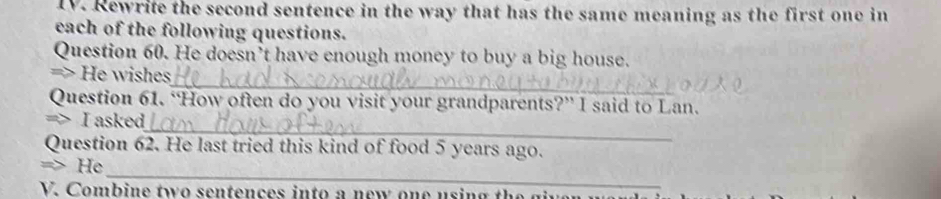 IV. Rewrite the second sentence in the way that has the same meaning as the first one in
each of the following questions.
Question 60. He doesn't have enough money to buy a big house.
=> He wishes He had enough money to buy
Question 61. "How often do you visit your grandparents?" I said to Lan.
=> I asked Lan How often
Question 62. He last tried this kind of food 5 years ago.
=> He
V. Combine two sentences into a new one using the